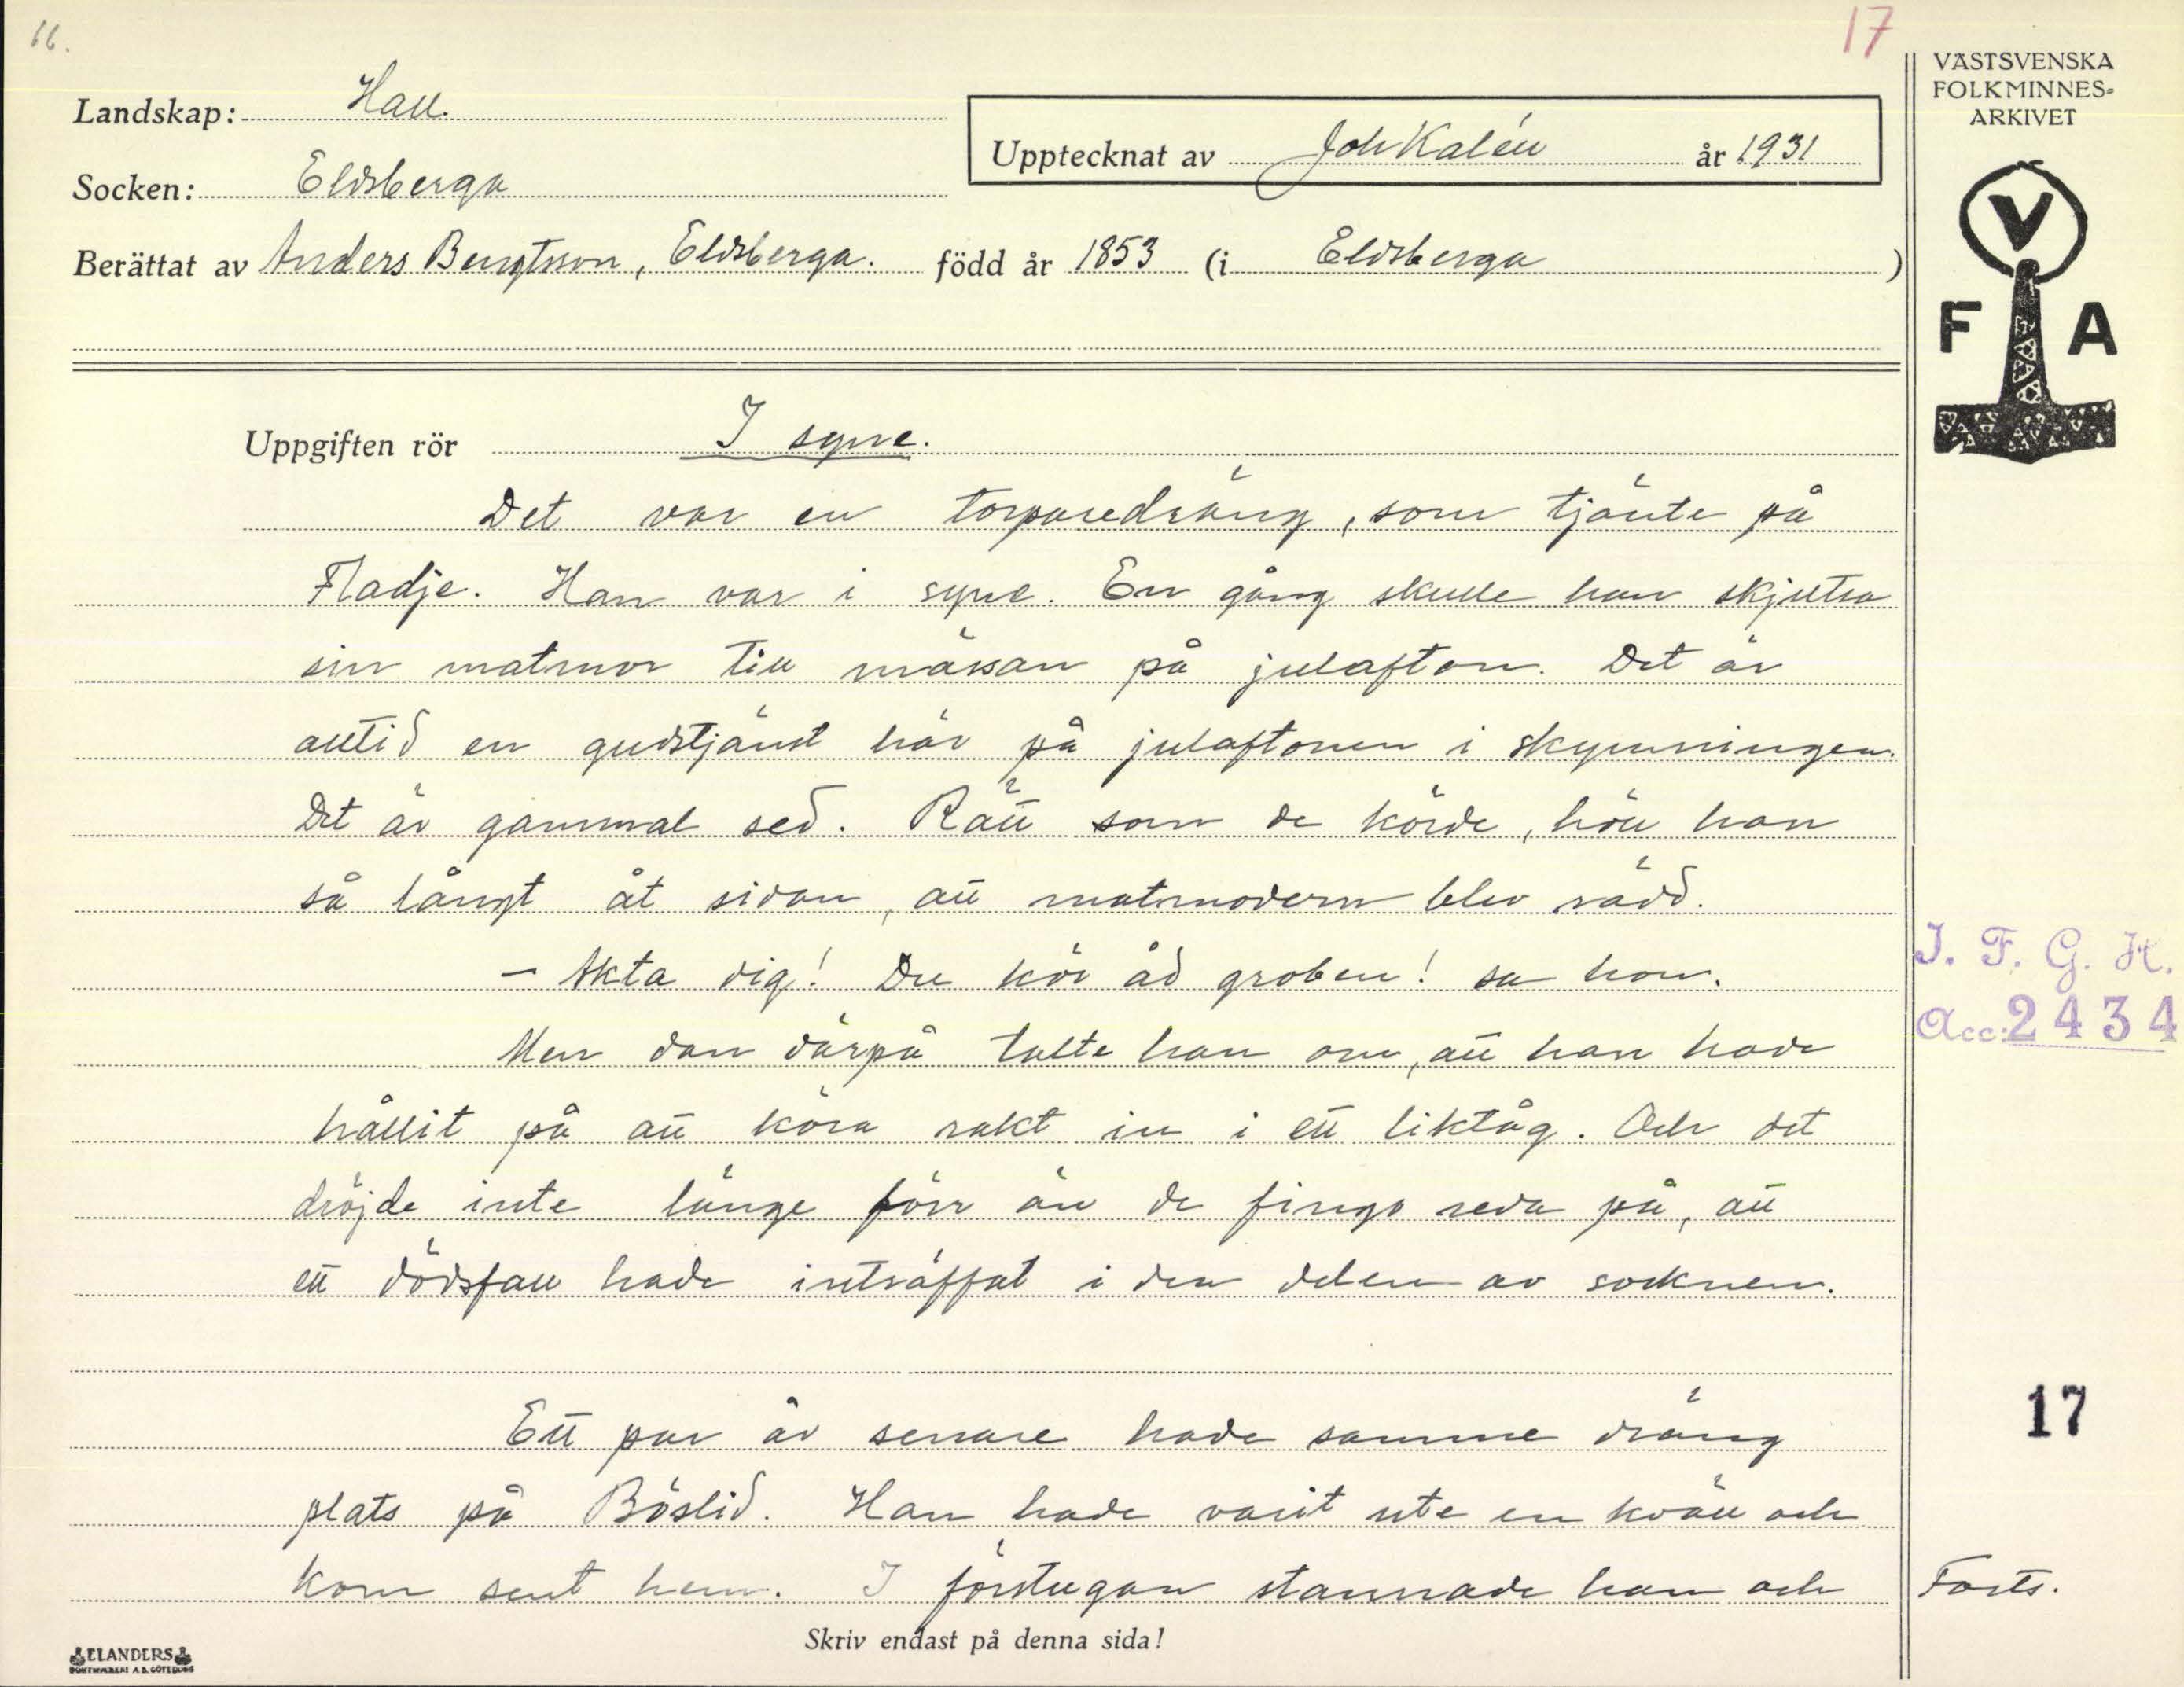 66.
17
Landskap: Hall.
Upptecknat av Joh Kalén år 1931
Socken: Eldsberga
Berättat av Anders Bengtsson, Eldsberga. född år 1853 (i Eldsberga)
VÄSTSVENSKA
FOLKMINNES-
ARKIVET
V
F A
Uppgiften rör I syne.
Det var en torparedräng, som tjänte på
Fladje. Han var i syne. En gång skulle han skjutsa
sin matmor till mässan på julafton. Det är
alltid en gudstjänst här på julaftonen i skymningen.
Det är gammal sed. Rätt som de körde, höll han
så långt åt sidan, att matmodern blev rädd.
- Akta dig! Du kör åd groben! sa hon.
Men dan därpå talte han om, att han hade
hållit på att köra rakt in i ett liktåg. Och det
dröjde inte länge förr än de fingo reda på, att
ett dödsfall hade inträffat i den delen av socknen.
I. F. G. H.
Acc: 2434
Ett par år senare hade samme dräng
plats på Böslid. Han hade varit ute en kväll och
kom sent hem. I förstugan stannade han och
17
Forts.
Skriv endast på denna sida!
ELANDERS
BOKTRYCKERI A.B. GÖTEBORG